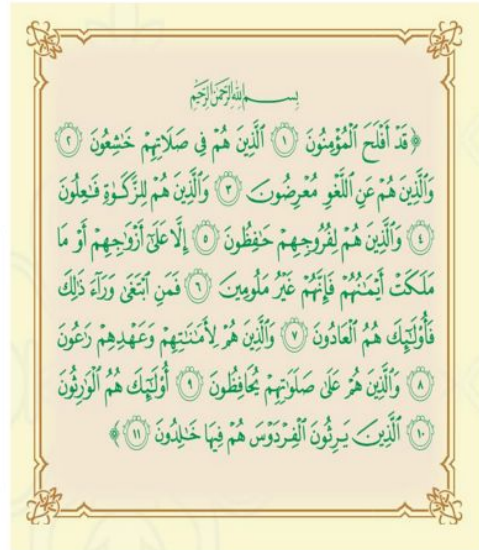 بِسْمِ اللَّهِ الرَّحْمَنِ الرَّحِيمِ
﴿ قَدْ أَفْلَحَ ٱلْمُؤْمِنُونَ ١ ٱلَّذِينَ هُمْ فِي صَلَاتِهِمْ خَٰشِعُونَ ٢
وَٱلَّذِينَ هُمْ عَنِ ٱللَّغْوِ مُعْرِضُونَ ٣ وَٱلَّذِينَ هُمْ لِلزَّكَوٰةِ فَٰعِلُونَ
٤ وَٱلَّذِينَ هُمْ لِفُرُوجِهِمْ حَٰفِظُونَ ٥ إِلَّا عَلَىٰٓ أَزْوَٰجِهِمْ أَوْ مَا
مَلَكَتْ أَيْمَٰنُهُمْ فَإِنَّهُمْ غَيْرُ مَلُومِينَ ٦ فَمَنِ ٱبْتَغَىٰ وَرَآءَ ذَٰلِكَ
فَأُو۟لَٰٓئِكَ هُمُ ٱلْعَادُونَ ٧ وَٱلَّذِينَ هُمْ لِأَمَٰنَٰتِهِمْ وَعَهْدِهِمْ رَٰعُونَ
٨ وَٱلَّذِينَ هُمْ عَلَىٰ صَلَوَٰتِهِمْ يُحَافِظُونَ ٩ أُو۟لَٰٓئِكَ هُمُ ٱلْوَٰرِثُونَ
١٠ ٱلَّذِينَ يَرِثُونَ ٱلْفِرْدَوْسَ هُمْ فِيهَا خَٰلِدُونَ ١١ ﴾